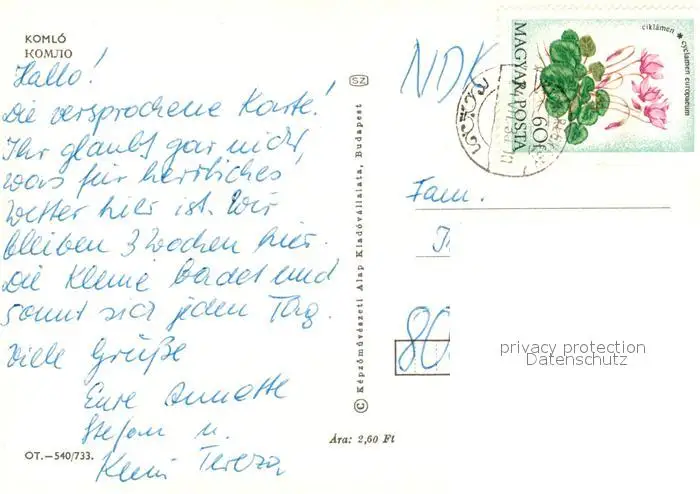 KOMLÓ
КОМЛО
Hallo!
Die versprochene Karte!
Ihr glaubt gar nicht,
was für herrliches
Wetter hier ist. Wir
bleiben 3 Wochen hier.
Die Kleine badet und
sonnt sich jeden Tag.
Viele Grüße
Eure Annette
Stefan u.
Klein Tereza
OT.—540/733.
SZ
© Képzőművészeti Alap Kiadóvállalata, Budapest
Ára: 2,60 Ft
NDK
MAGYAR POSTA
60f
ciklámen * cyclamen europaeum
Fam.
80
privacy protection
Datenschutz